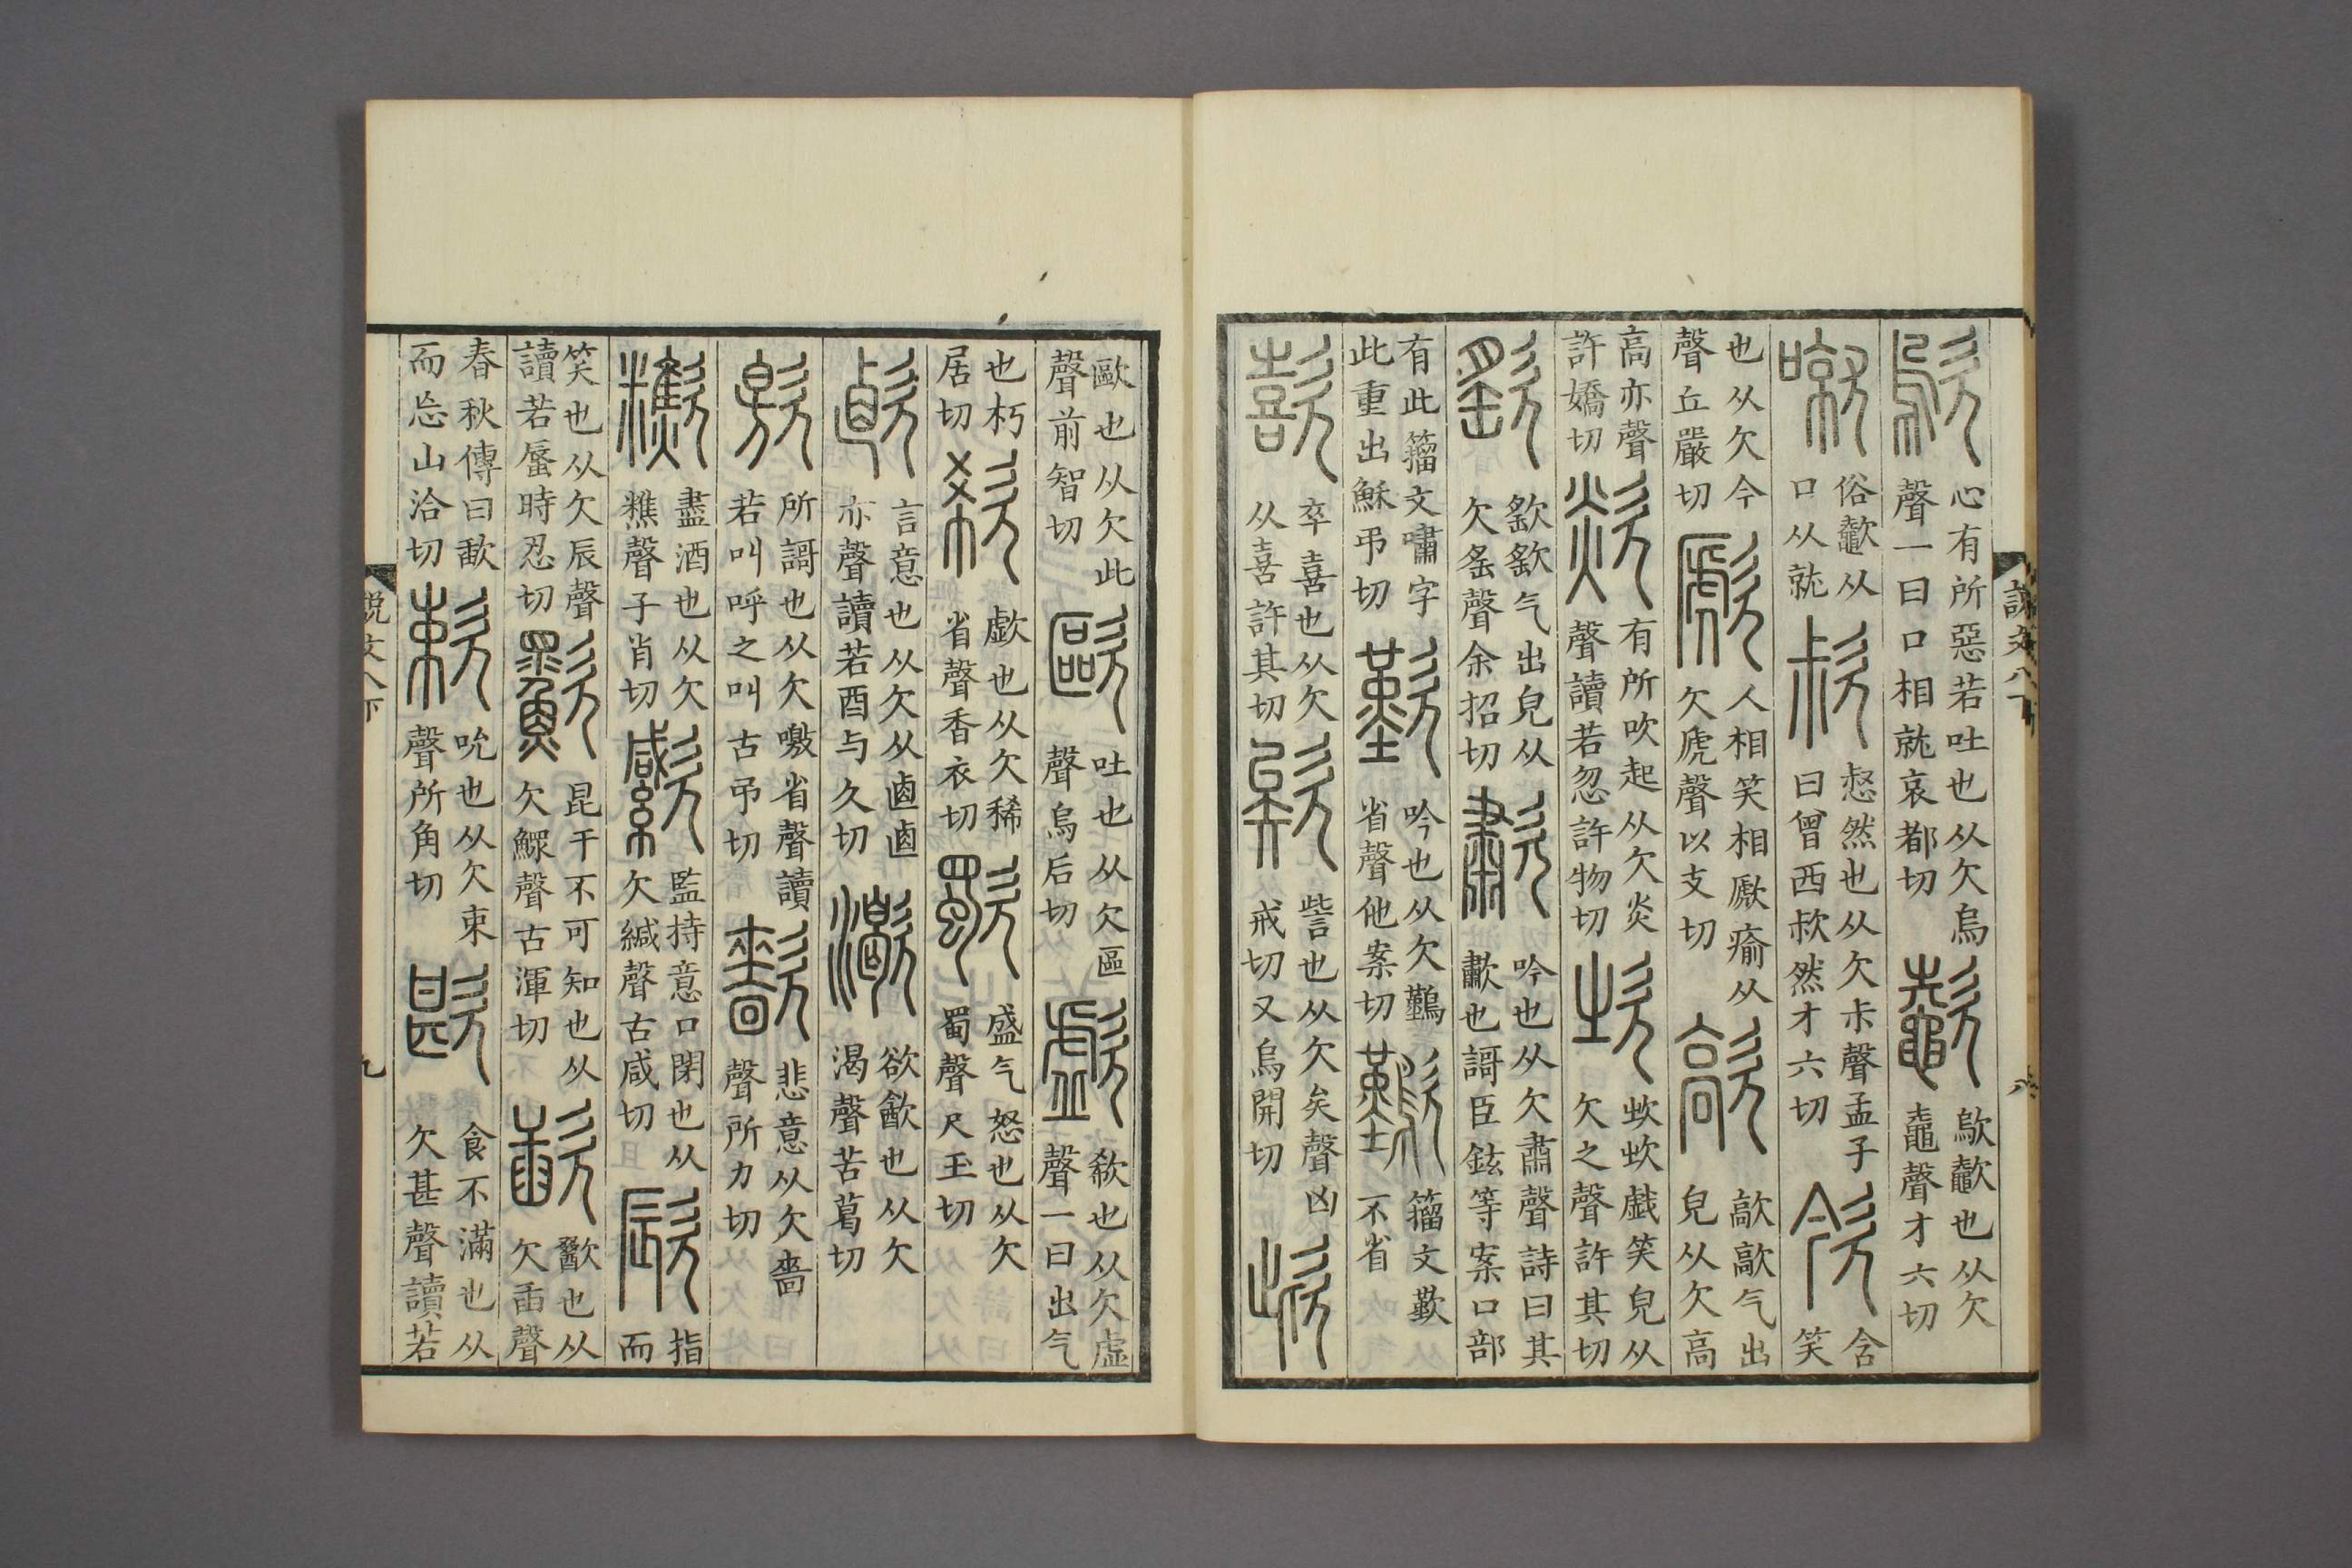 歍心有所惡若吐也从欠烏聲一曰口相就哀都切歍也从欠鼀聲才六切
噈俗从口从就怒然也从欠尗聲孟子曰曾西然才六切欦含笑
也从欠今聲丘嚴切歋人相笑相歋瘉从欠虒聲以支切歊歊歊气出皃从欠高
高亦聲許嬌切欻有所吹起从欠炎聲讀若忽許物切戲笑皃从欠之聲許其切
气出皃从欠䍃聲余招切歗吟也从欠肅聲詩曰其歗也謌臣鉉等案口部
有此籀文嘯字此重出穌弔切歎吟也从欠省聲他案切籀文歎不省
歖卒喜也从欠从喜許其切欸訾也从欠矣聲凶戒切又烏開切㰣
說文八下
八
歐也从欠此聲前智切歐吐也从欠區聲烏后切歔欷也从欠虛聲一曰出气
也朽居切欷歔也从欠稀省聲香衣切歜盛气怒也从欠蜀聲尺玉切
言意也从欠从𠧪𠧪亦聲讀若酉与久切欲歠也从欠渴聲苦葛切
所謌也从欠噭省聲讀若叫呼之叫古弔切悲意从欠嗇聲所力切
盡酒也从欠糕聲子肖切監持意口閉也从欠緘聲古咸切指而
笑也从欠辰聲讀若蜃時忍切昆干不可知也从欠鰥聲古渾切歃歠也从欠臿聲
春秋傳曰歃而忘山洽切欶吮也从欠束聲所角切歁食不滿也从欠甚聲讀若
說文八下
九